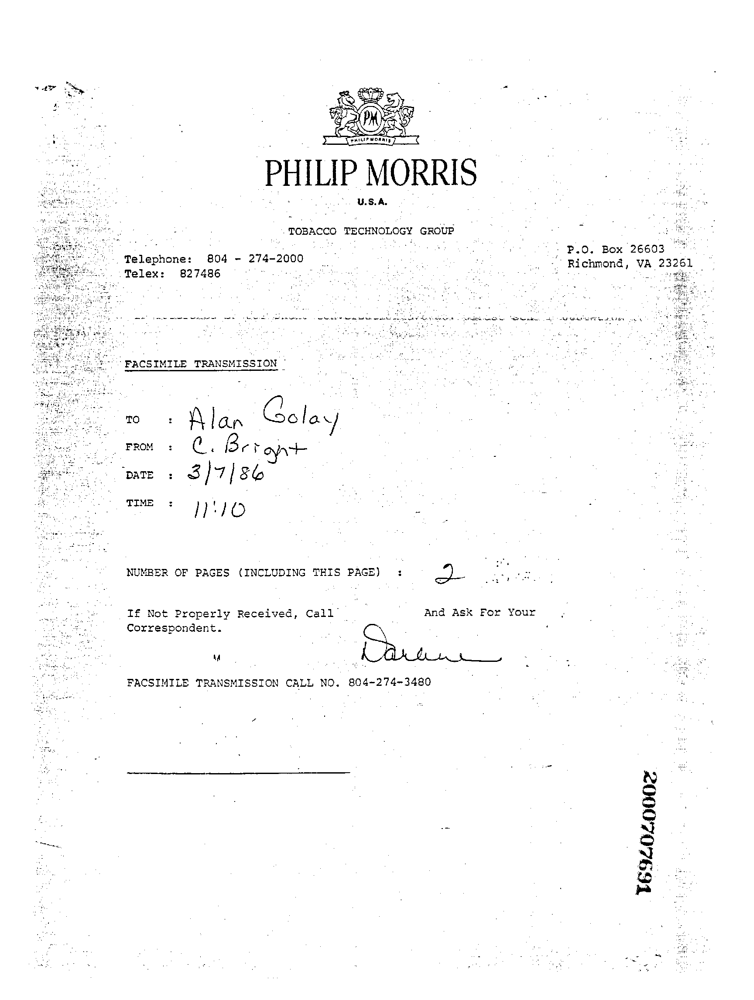 PM
PHILIP MORRIS
PHILIP MORRIS
U.S.A.
TOBACCO TECHNOLOGY GROUP
Telephone: 804 - 274-2000
Telex: 827486
P.O. Box 26603
Richmond, VA 23261
FACSIMILE TRANSMISSION
TO : Alan Golay
FROM : C. Bright
DATE : 3/7/86
TIME : 11:10
NUMBER OF PAGES (INCLUDING THIS PAGE) : 2
If Not Properly Received, Call And Ask For Your
Correspondent.
Darlene
FACSIMILE TRANSMISSION CALL NO. 804-274-3480
2000707691